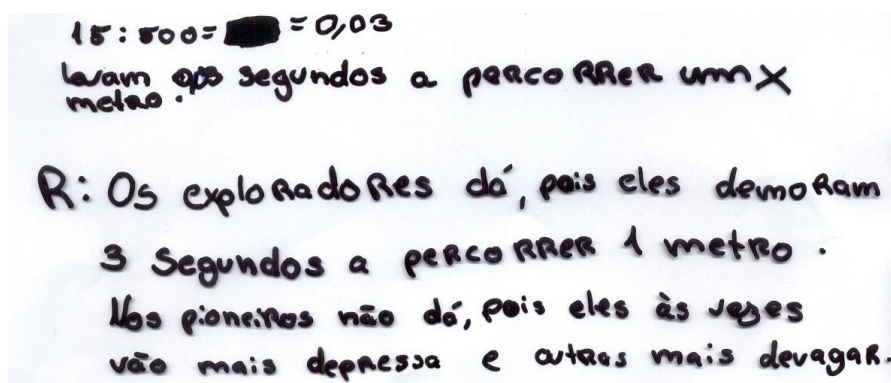 15 : 500 = = 0,03
Levam 0,03 segundos a percorrer um X
metro.
R: Os exploradores dá, pois eles demoram
3 segundos a percorrer 1 metro.
Nos pioneiros não dá, pois eles às vezes
vão mais depressa e outras mais devagar.